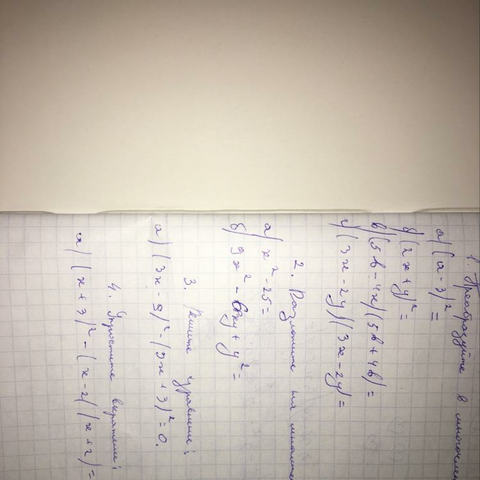 1. Преобразуйте в многочлен
а) (a - 3)² =
б) (2x + y)² =
в) (5b - 4x)(5b + 4b) =
г) (3x - 2y)(3x - 2y) =
2. Разложите на множители
а) x² - 25 =
б) 9x² - 6xy + y² =
3. Решите уравнение:
а) (3x - 9)² - (3x + 3)² = 0.
4. Упростите выражение:
а) (x + 3)² - (x - 2)(x + 2) =